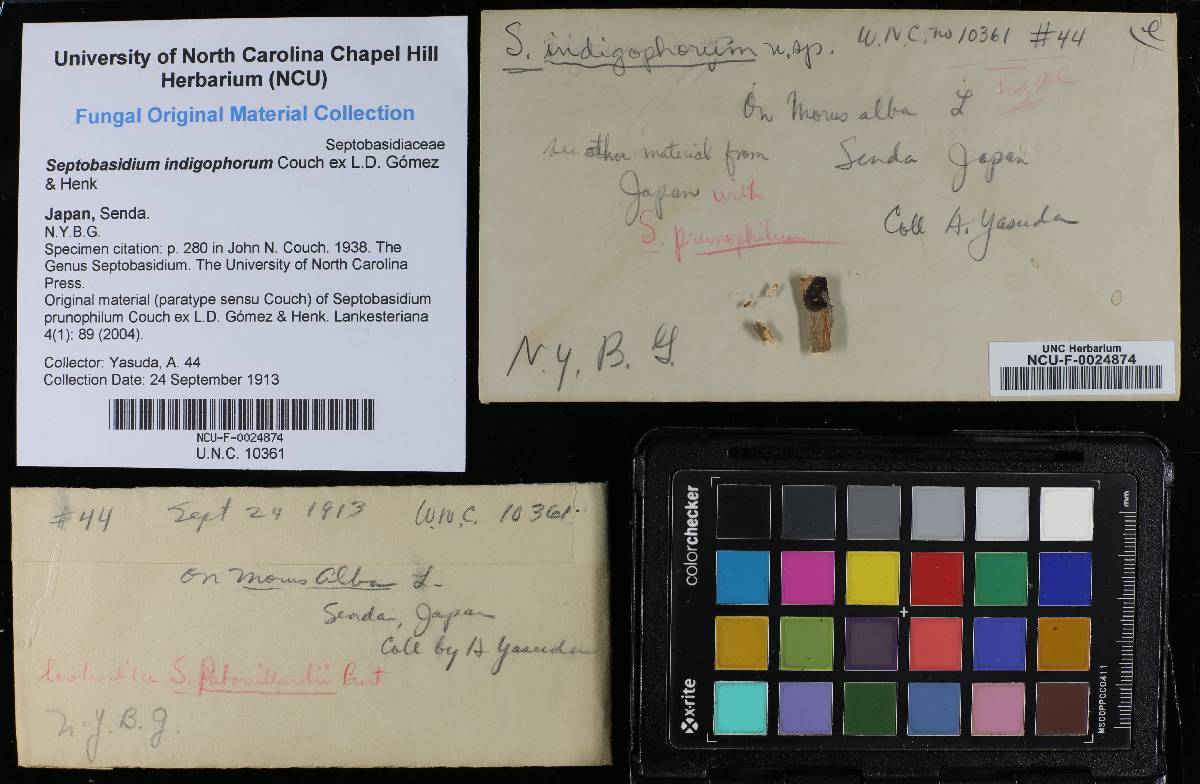 University of North Carolina Chapel Hill
Herbarium (NCU)
Fungal Original Material Collection
Septobasidiaceae
Septobasidium indigophorum Couch ex L.D. Gómez
& Henk
Japan, Senda.
N.Y.B.G.
Specimen citation: p. 280 in John N. Couch. 1938. The
Genus Septobasidium. The University of North Carolina
Press.
Original material (paratype sensu Couch) of Septobasidium
prunophilum Couch ex L.D. Gómez & Henk. Lankesteriana
4(1): 89 (2004).
Collector: Yasuda, A. 44
Collection Date: 24 September 1913
NCU-F-0024874
U.N.C. 10361
S. indigophorum n.sp. U.N.C. no 10361 #44
type
On Morus alba L
see other material from Senda Japan
Japan with
S. prunophilum
Coll A. Yasuda
N.Y. B. G.
UNC Herbarium
NCU-F-0024874
#44 Sept 24 1913 U.N.C. 10361
On Morus Alba L.
Senda, Japan
Coll by A Yasuda
looks like S. Patouillardii Burt
N.Y.B.G.
colorchecker
x-rite
mm
MSCCPPCC0411